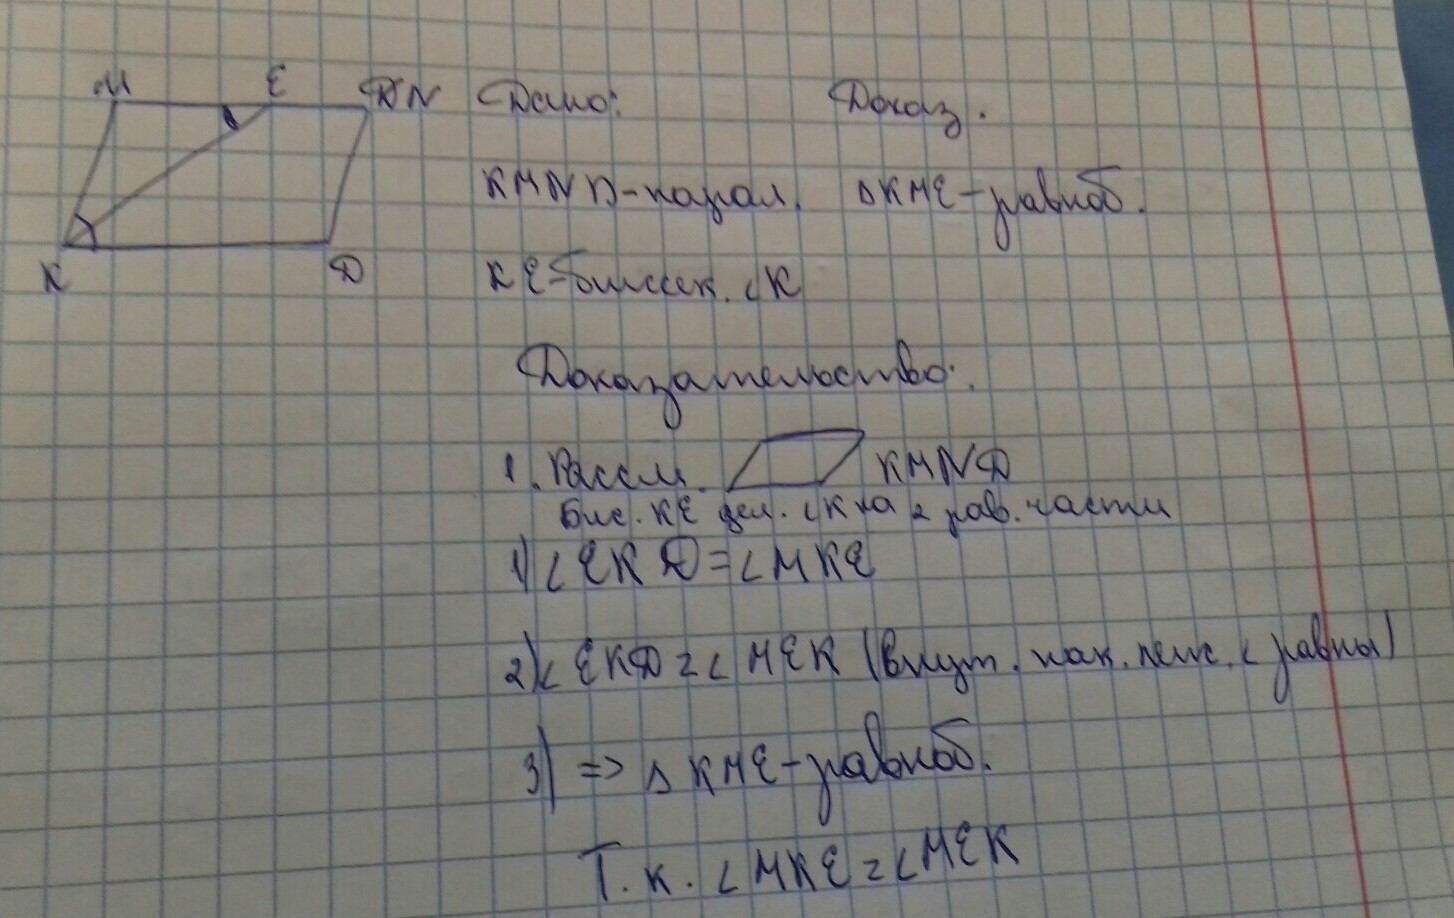 М Е N Дано: Доказ.
KMND-парал. ΔKME-равноб.
К D KE-биссек. ∠K
Доказательство:
1. Рассм. KMND
Бис. KE дел. ∠K на 2 рав. части
1) ∠EKD=∠MKE
2) ∠EKD=∠MEK (внут. нак. леж. ∠ равны)
3) => Δ KME-равноб.
Т.к. ∠MKE=∠MEK